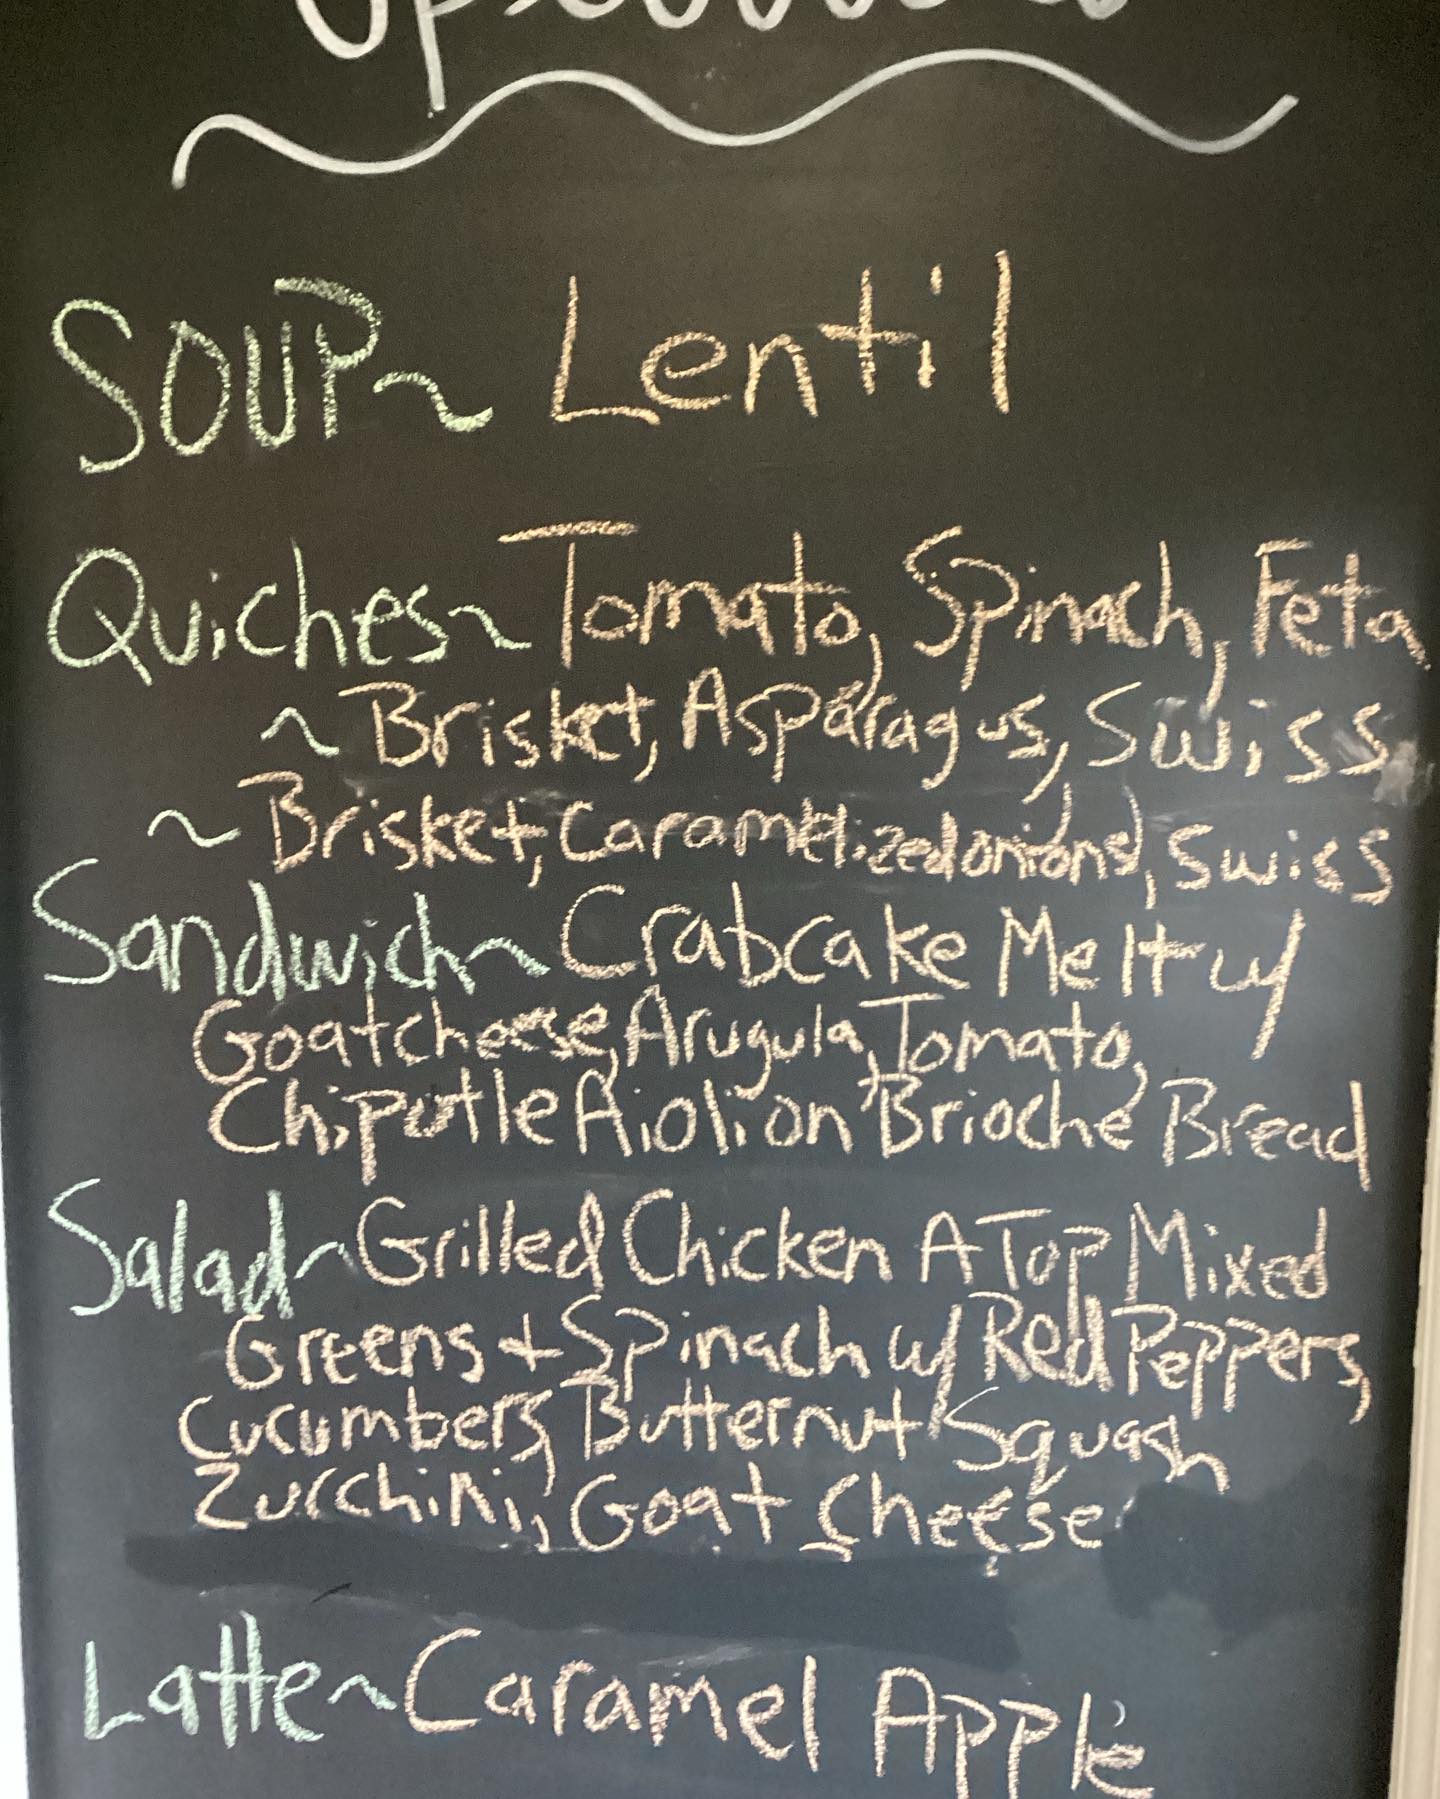 SOUP~ Lentil
Quiches~ Tomato, Spinach, Feta
~ Brisket, Asparagus, Swiss
~ Brisket, Caramelized onions, Swiss
Sandwich~ Crabcake Melt w/
Goatcheese, Arugula, Tomato,
Chipotle Aioli on Brioche Bread
Salad~ Grilled Chicken A Top Mixed
Greens + Spinach w/ Red Peppers,
Cucumbers, Butternut Squash
Zucchini, Goat Cheese
Latte~ Caramel Apple